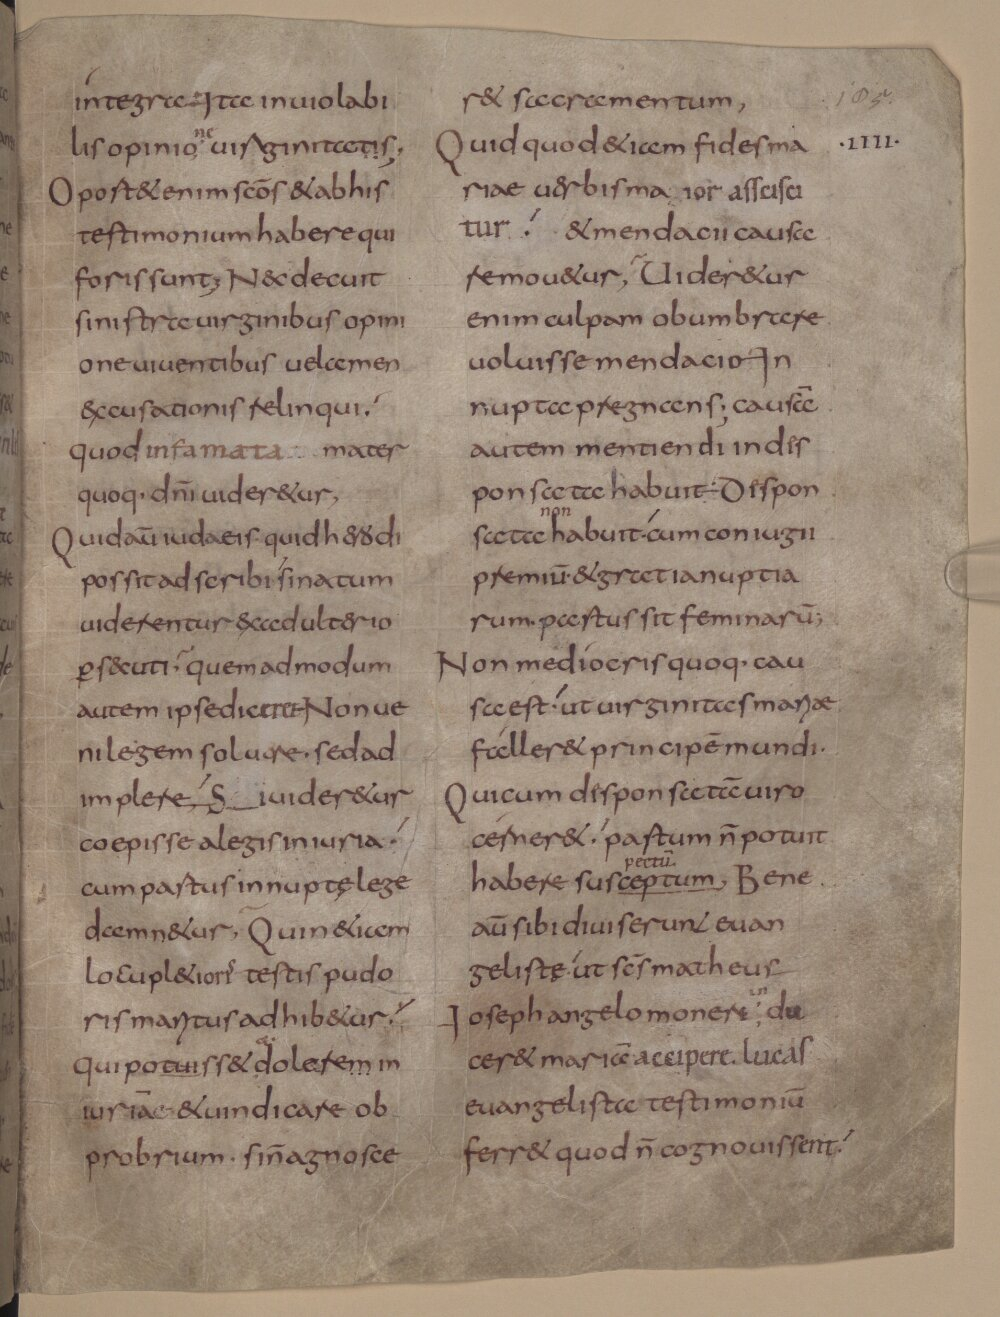 integra Ita inviolabi
lis opinione virginitatis;
Oportet enim scōs & ab his
testimonium habere qui
foris sunt; Nec decuit
sinistra virginibus opini
one viventibus velamen
accusationis relinqui,
quod infamata mater
quoq· dñi videretur,
Quid aū iudaeis quid herodi
possit adscribi si natum
viderentur ex adulterio
persecuti quemadmodum
autem ipse diceret Non ve
ni legem solvere· sed ad
implere, Si videretur
coepisse a legis iniuria·
cum partus innuptę lege
damnetur, Quin etiam
locupletior testis pudo
ris maritus adhibetur·
Qui potuisset dolere in
iuriam & vindicare ob
probrium· si ñ agnosce
ret sacramentum,
Quid quod etiam fides ma ·IIII·
riae verbis ma ior asscisci
tur & mendacii causa
removetur, Videretur
enim culpam obumbrare
voluisse mendacio In
nupta pregnans; causā
autem mentiendi in dis
ponsata habuit Dispon
sata non habuit· cum coniugii
premiū· & gratia nuptia
rum· partus sit feminarū;
Non mediocris quoq· cau
sa est· ut virginitas mariae
falleret principē mundi·
Qui cum disponsatā viro
cerneret· partum ñ potuit
pectū
habere susceptum, Bene
aū sibi diviserunt evan
gelistę· ut scs matheus
Ioseph angelo moneri du
ceret mariā accipere· lucas
evangelista testimoniū
ferret quod ñ cognovissent·